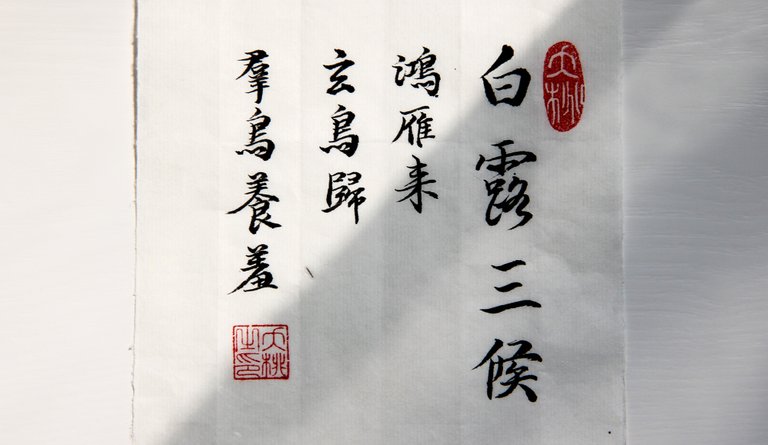 白露三候
鴻雁来
玄鳥歸
羣鳥養羞